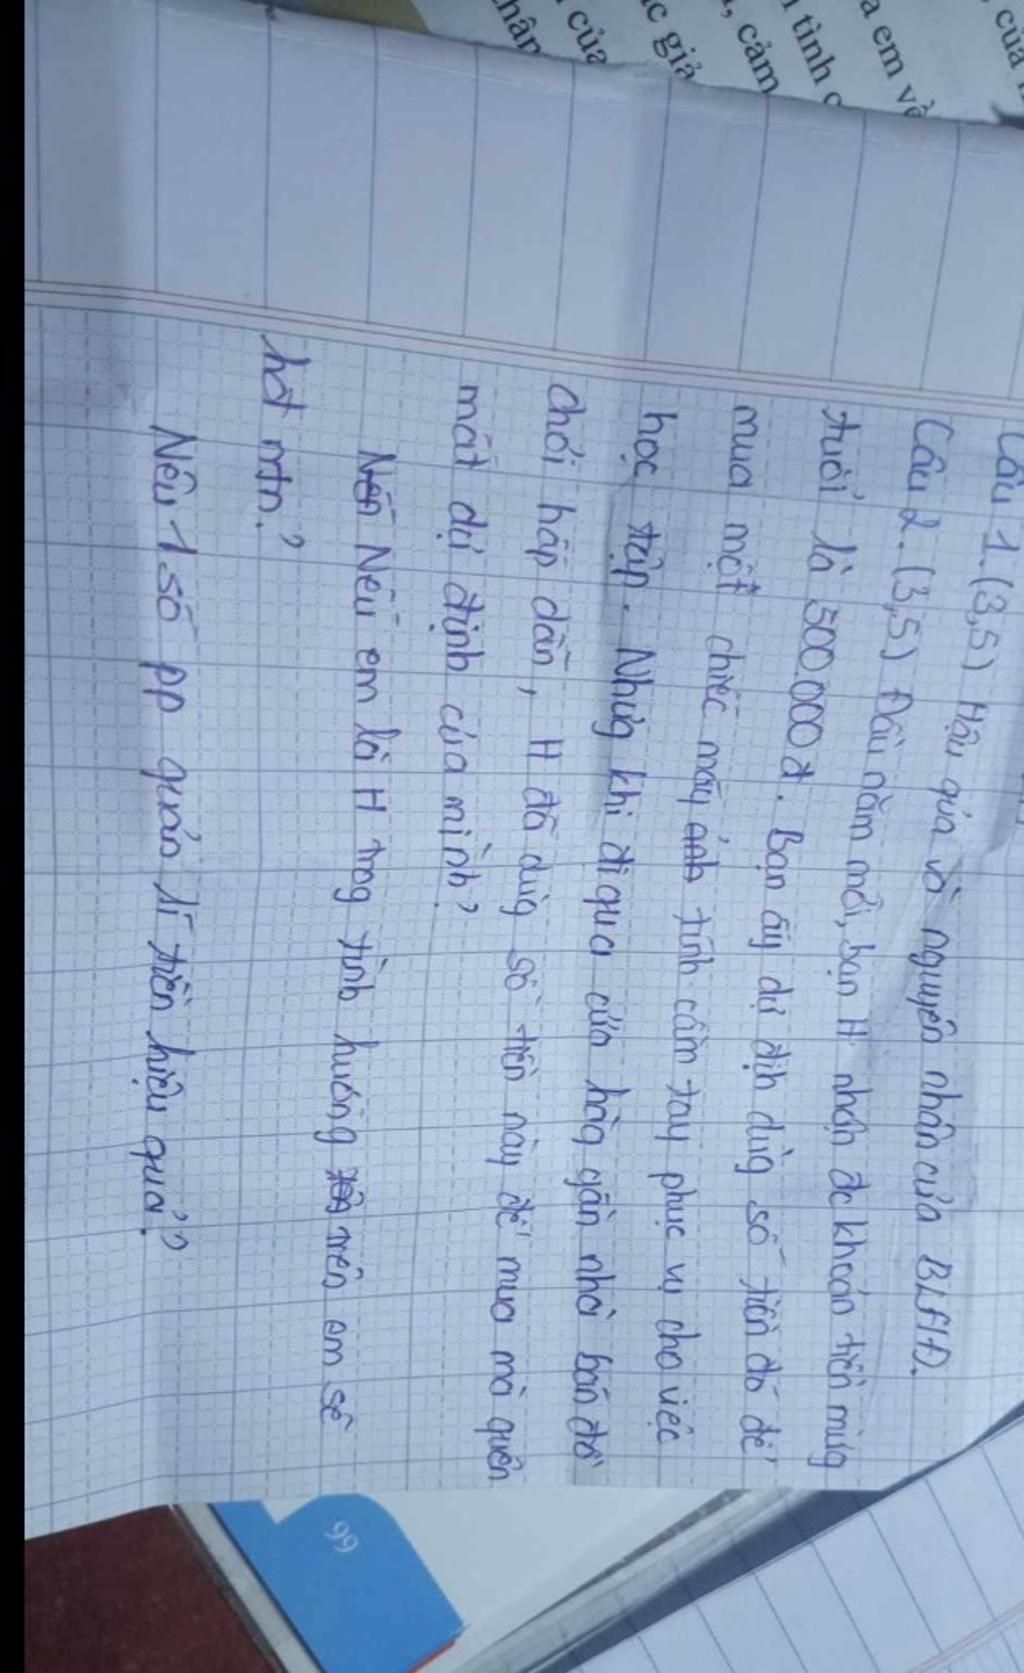 của
a em về
tình c
, cảm
ác giả
của
hân
Câu 1. (3,5) Hậu quả và nguyên nhân của BLHĐ.
Câu 2. (3,5) Đầu năm mới, bạn H nhận đc khoản tiền mừg
tuổi là 500.000đ. Bạn ấy dự địh dùg số tiền đó để
mua một chiếc máy tính cầm tay phục vụ cho việc
học tập. Nhưg khi đi qua cửa hàg gần nhà bán đồ
chơi hấp dẫn, H đã dùg số tiền này để mua mà quên
mất dự định của mình?
Nếu em là H trog tình huống trên em sẽ
hđ ntn?
Nêu 1 số pp quản lí tiền hiệu quả?
99